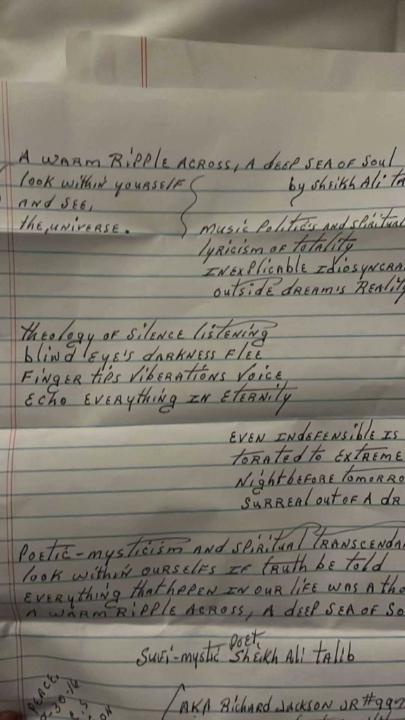 A WARM RiPPLE ACROSS, A dEEP SEA OF SOUL
look within yourself
by Sheikh Ali
AND SEE,
the, UNIVERSE.
music Politics AND
lyricism of totality
INEXPLICABLE
outside DREAM'S
theology of SilENCE listENiNg
bliNd EyE'S dARKNESS FLEE
FiNgER tips VibERAtiONS VoicE
Echo EVERythiNg iN EtERNity
EVEN INdEFENSiblE iS
toRAtEd to EXTREME
Night bEFORE
SURREAL out oF A
PoEtic-mysticism AND SPiRituAl
look withiN OURSElVES IF truth bE told
EVERythiNg that hAPPEN iN OUR liFE WAS A
A WARM RiPPLE ACROSS, A dEEP SEA OF
PoEt,
Sufi-mystic Sheikh Ali tAlib
PEACE
AKA RichARd JACKSON JR #997